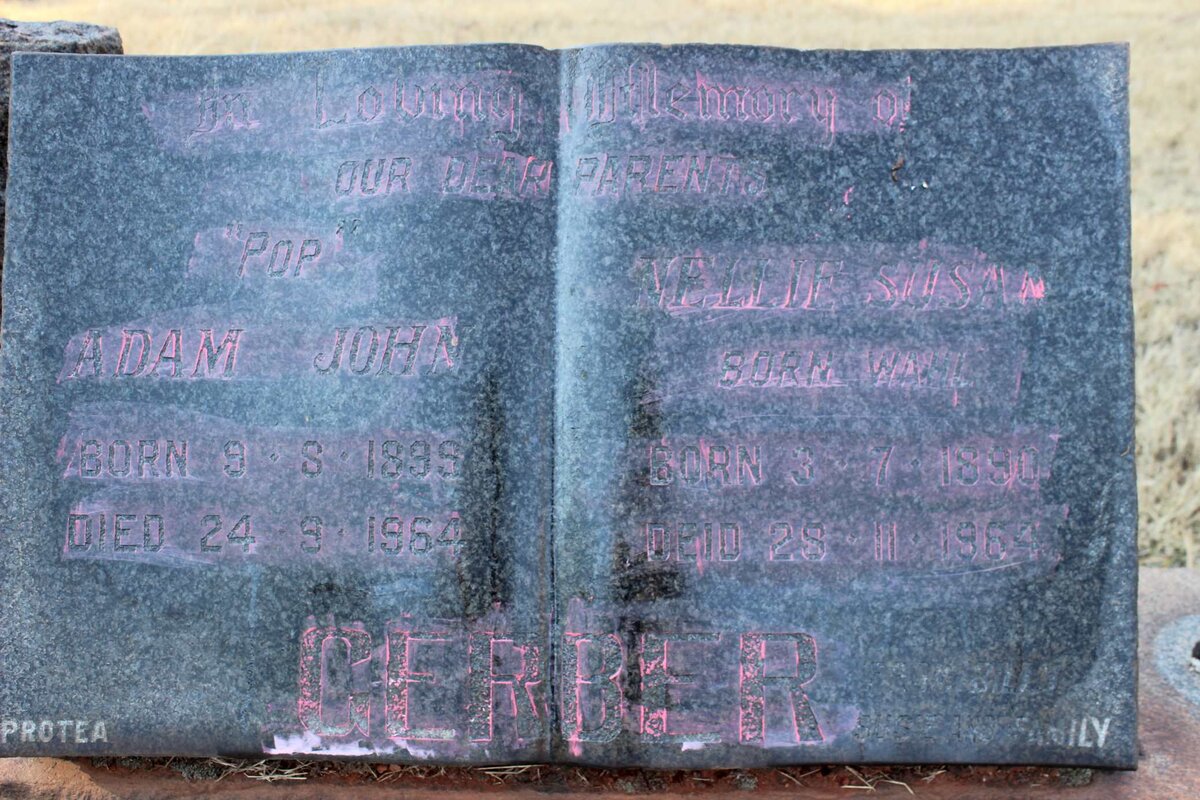 In Loving Memory of
OUR DEAR PARENTS
"POP"
ADAM JOHN
BORN 9·8·1899
DIED 24·9·1964
NELLIE SUSAN
BORN WAHL
BORN 3·7·1890
DEID 28·11·1964
GERBER
PROTEA
FAMILY